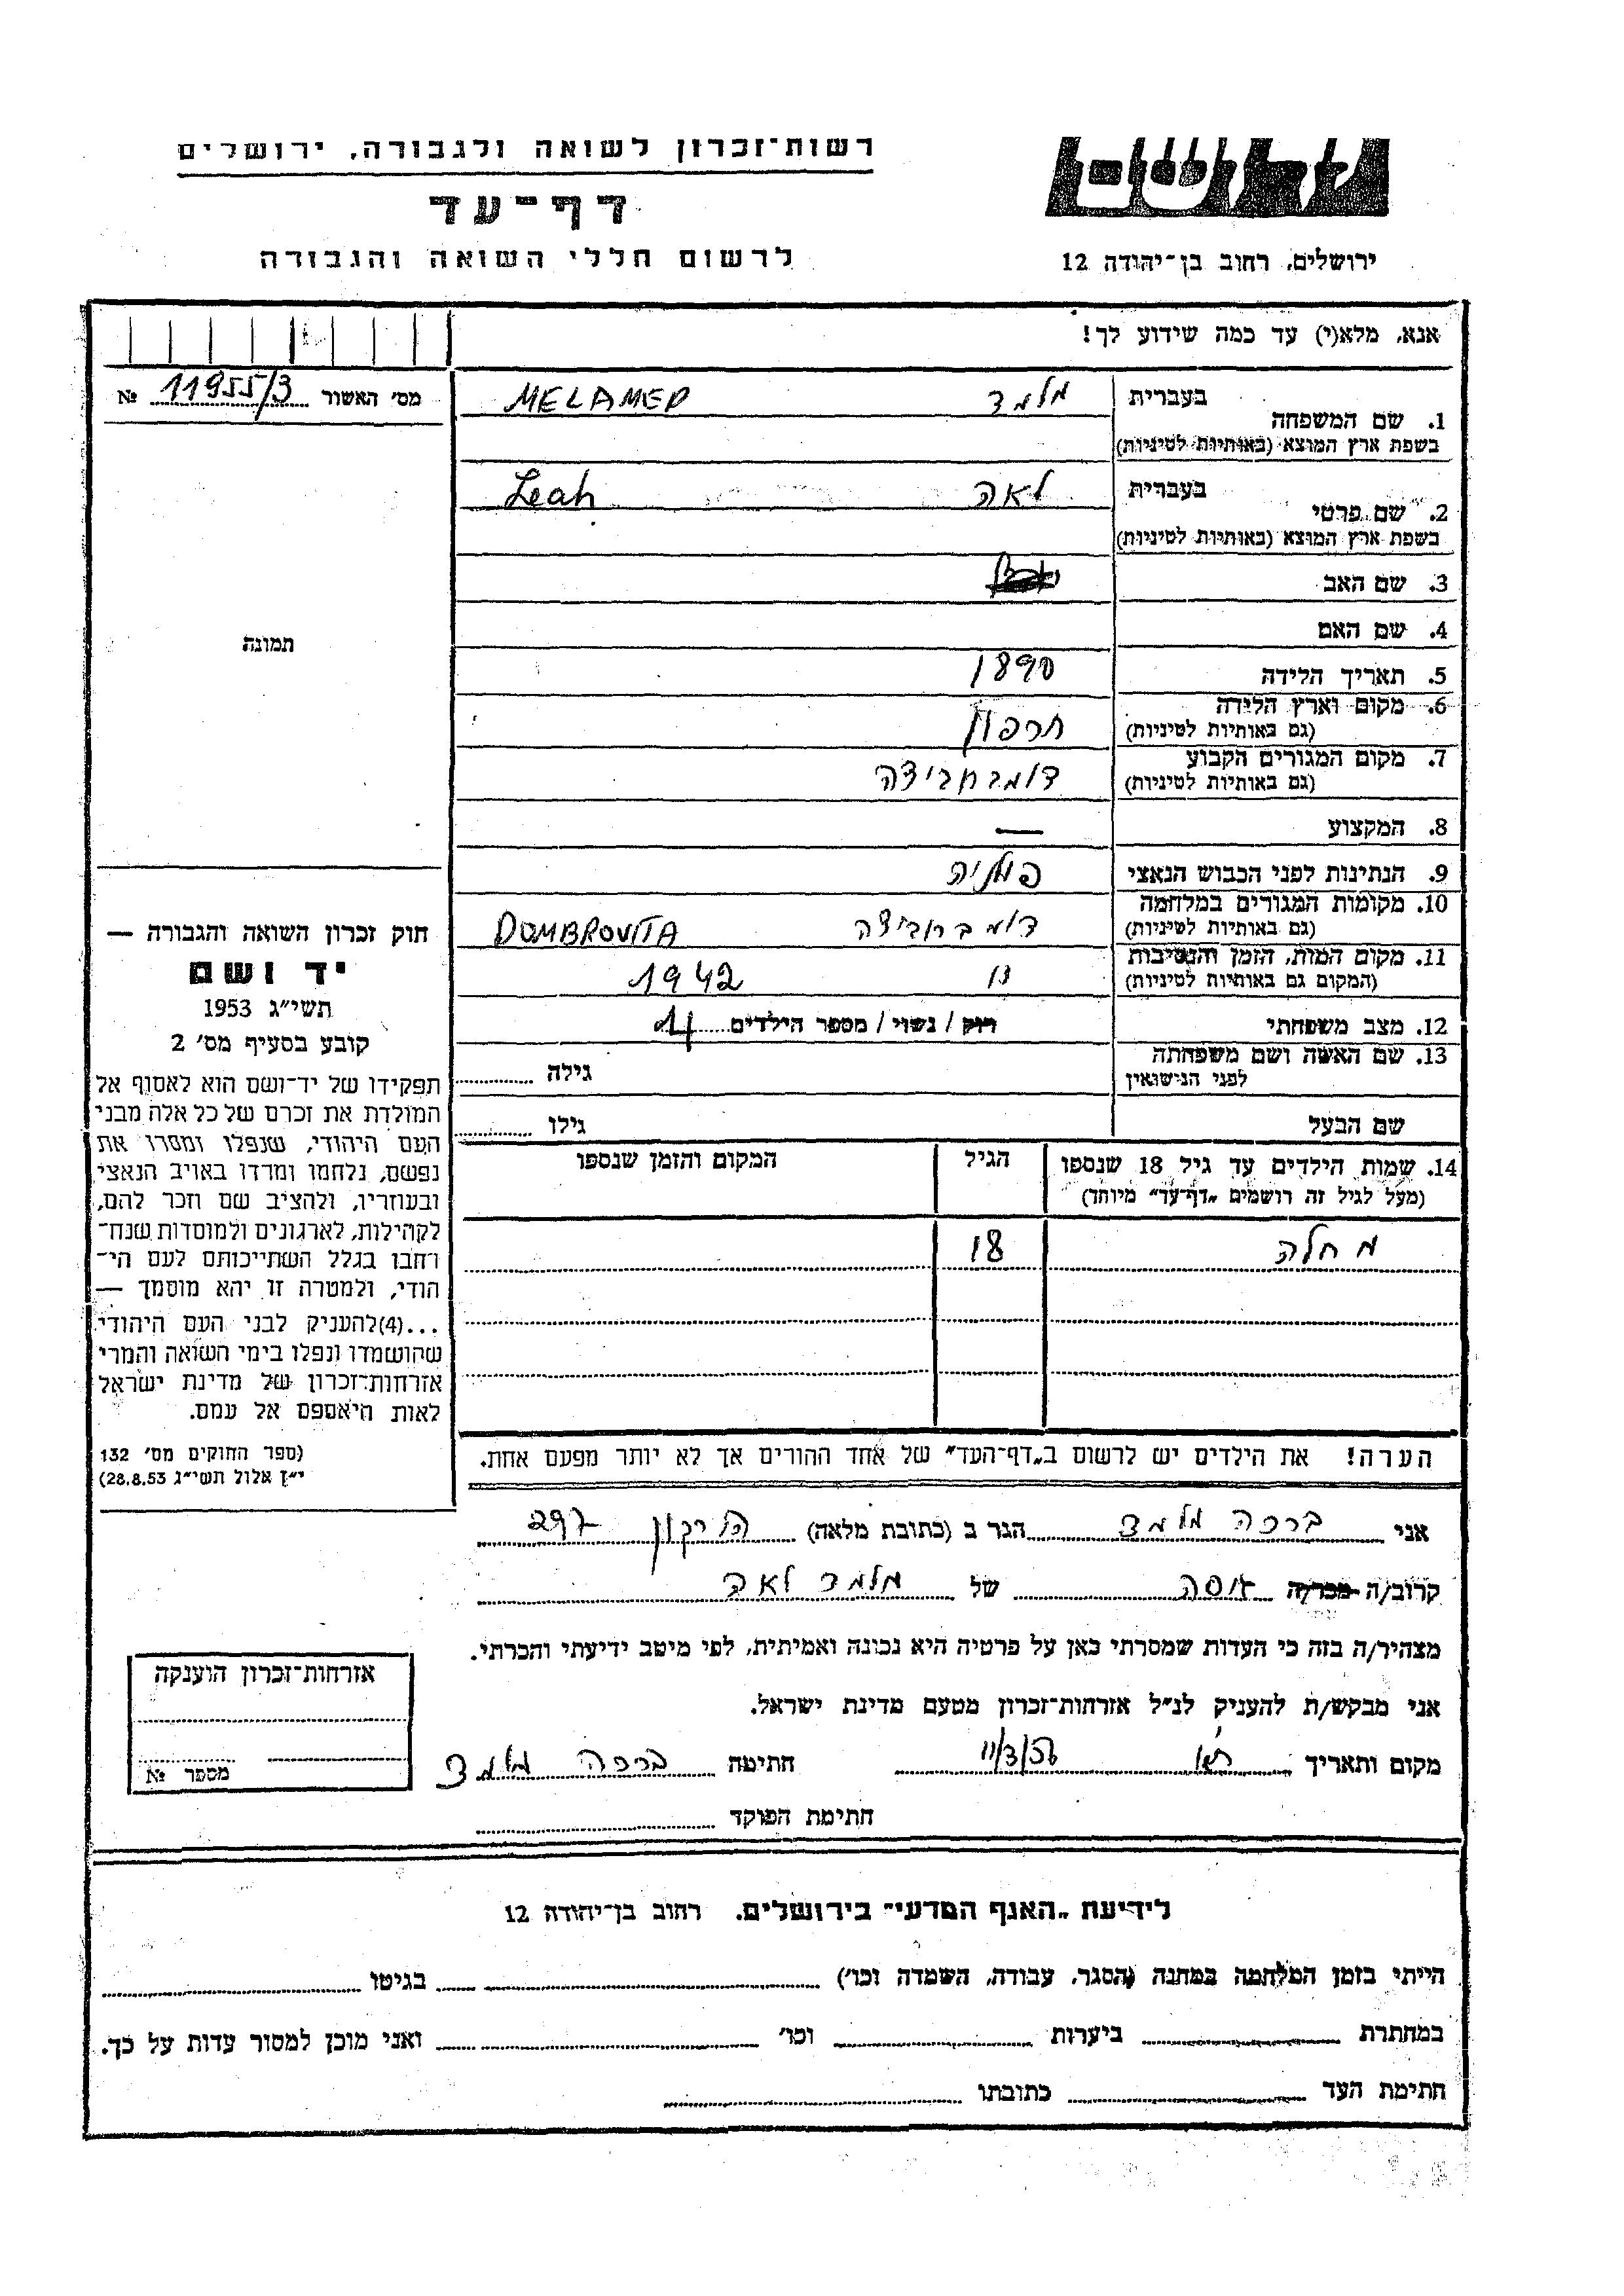 רשות־זכרון לשואה ולגבורה, ירושלים
דף־עד
לרשום חללי השואה והגבורה
ירושלים, רחוב בן־יהודה 12
אנא, מלא(י) עד כמה שידוע לך!
מס' האשור 11955/3 №
תמונה
חוק זכרון השואה והגבורה —
יד ושם
תשי״ג 1953
קובע בסעיף מס' 2
תפקידו של יד־ושם הוא לאסוף אל
המולדת את זכרם של כל אלה מבני
העם היהודי, שנפלו ומסרו את
נפשם, נלחמו ומרדו באויב הנאצי
ובעוזריו, ולהציב שם וזכר להם,
לקהילות, לארגונים ולמוסדות שנח־
רחבו בגלל השתייכותם לעם הי־
הודי, ולמטרה זו יהא מוסמך —
...(4)להעניק לבני העם היהודי
שהושמדו ונפלו בימי השואה והמרי
אזרחות־זכרון של מדינת ישראל
לאות היאספם אל עמם.
(ספר החוקים מס' 132
י״ז אלול תשי״ג 28.8.53)
1. שם המשפחה בעברית מלמד MELAMED
בשפת ארץ המוצא (באותיות לטיניות)
2. שם פרטי בעברית לאה Leah
בשפת ארץ המוצא (באותיות לטיניות)
3. שם האב
4. שם האם
5. תאריך הלידה 1890
6. מקום וארץ הלידה
(גם באותיות לטיניות)
7. מקום המגורים הקבוע
(גם באותיות לטיניות)
8. המקצוע —
9. הנתינות לפני הכבוש הנאצי פולניה
10. מקומות המגורים במלחמה דומברוביצה DOMBROVITA
(גם באותיות לטיניות)
11. מקום המות, הזמן והנסיבות 1942
(המקום גם באותיות לטיניות)
12. מצב משפחתי רוק / נשוי / מספר הילדים 4
13. שם האשה ושם משפחתה
לפני הנישואין גילה
שם הבעל גילו
14. שמות הילדים עד גיל 18 שנספו הגיל המקום והזמן שנספו
(מעל לגיל זה רושמים „דף־עד״ מיוחד)
מחלה 18
הערה! את הילדים יש לרשום ב„דף־העד״ של אחד ההורים אך לא יותר מפעם אחת.
אני ברכה מלמד הגר ב (כתובת מלאה) הירקון 297
קרוב/ה מכר/ה של מלמד לאה
מצהיר/ה בזה כי העדות שמסרתי כאן על פרטיה היא נכונה ואמיתית, לפי מיטב ידיעתי והכרתי.
אני מבקש/ת להעניק לנ״ל אזרחות־זכרון מטעם מדינת ישראל.
מקום ותאריך 11/3/56 חתימה ברכה מלמד
חתימת הפוקד
אזרחות־זכרון הוענקה
מספר №
לידיעת „האגף המדעי״ בירושלים, רחוב בן־יהודה 12
הייתי בזמן המלחמה במחנה (הסגר, עבודה, השמדה וכו') בגיטו
במחתרת ביערות וכו' ואני מוכן למסור עדות על כך.
חתימת העד כתובתו